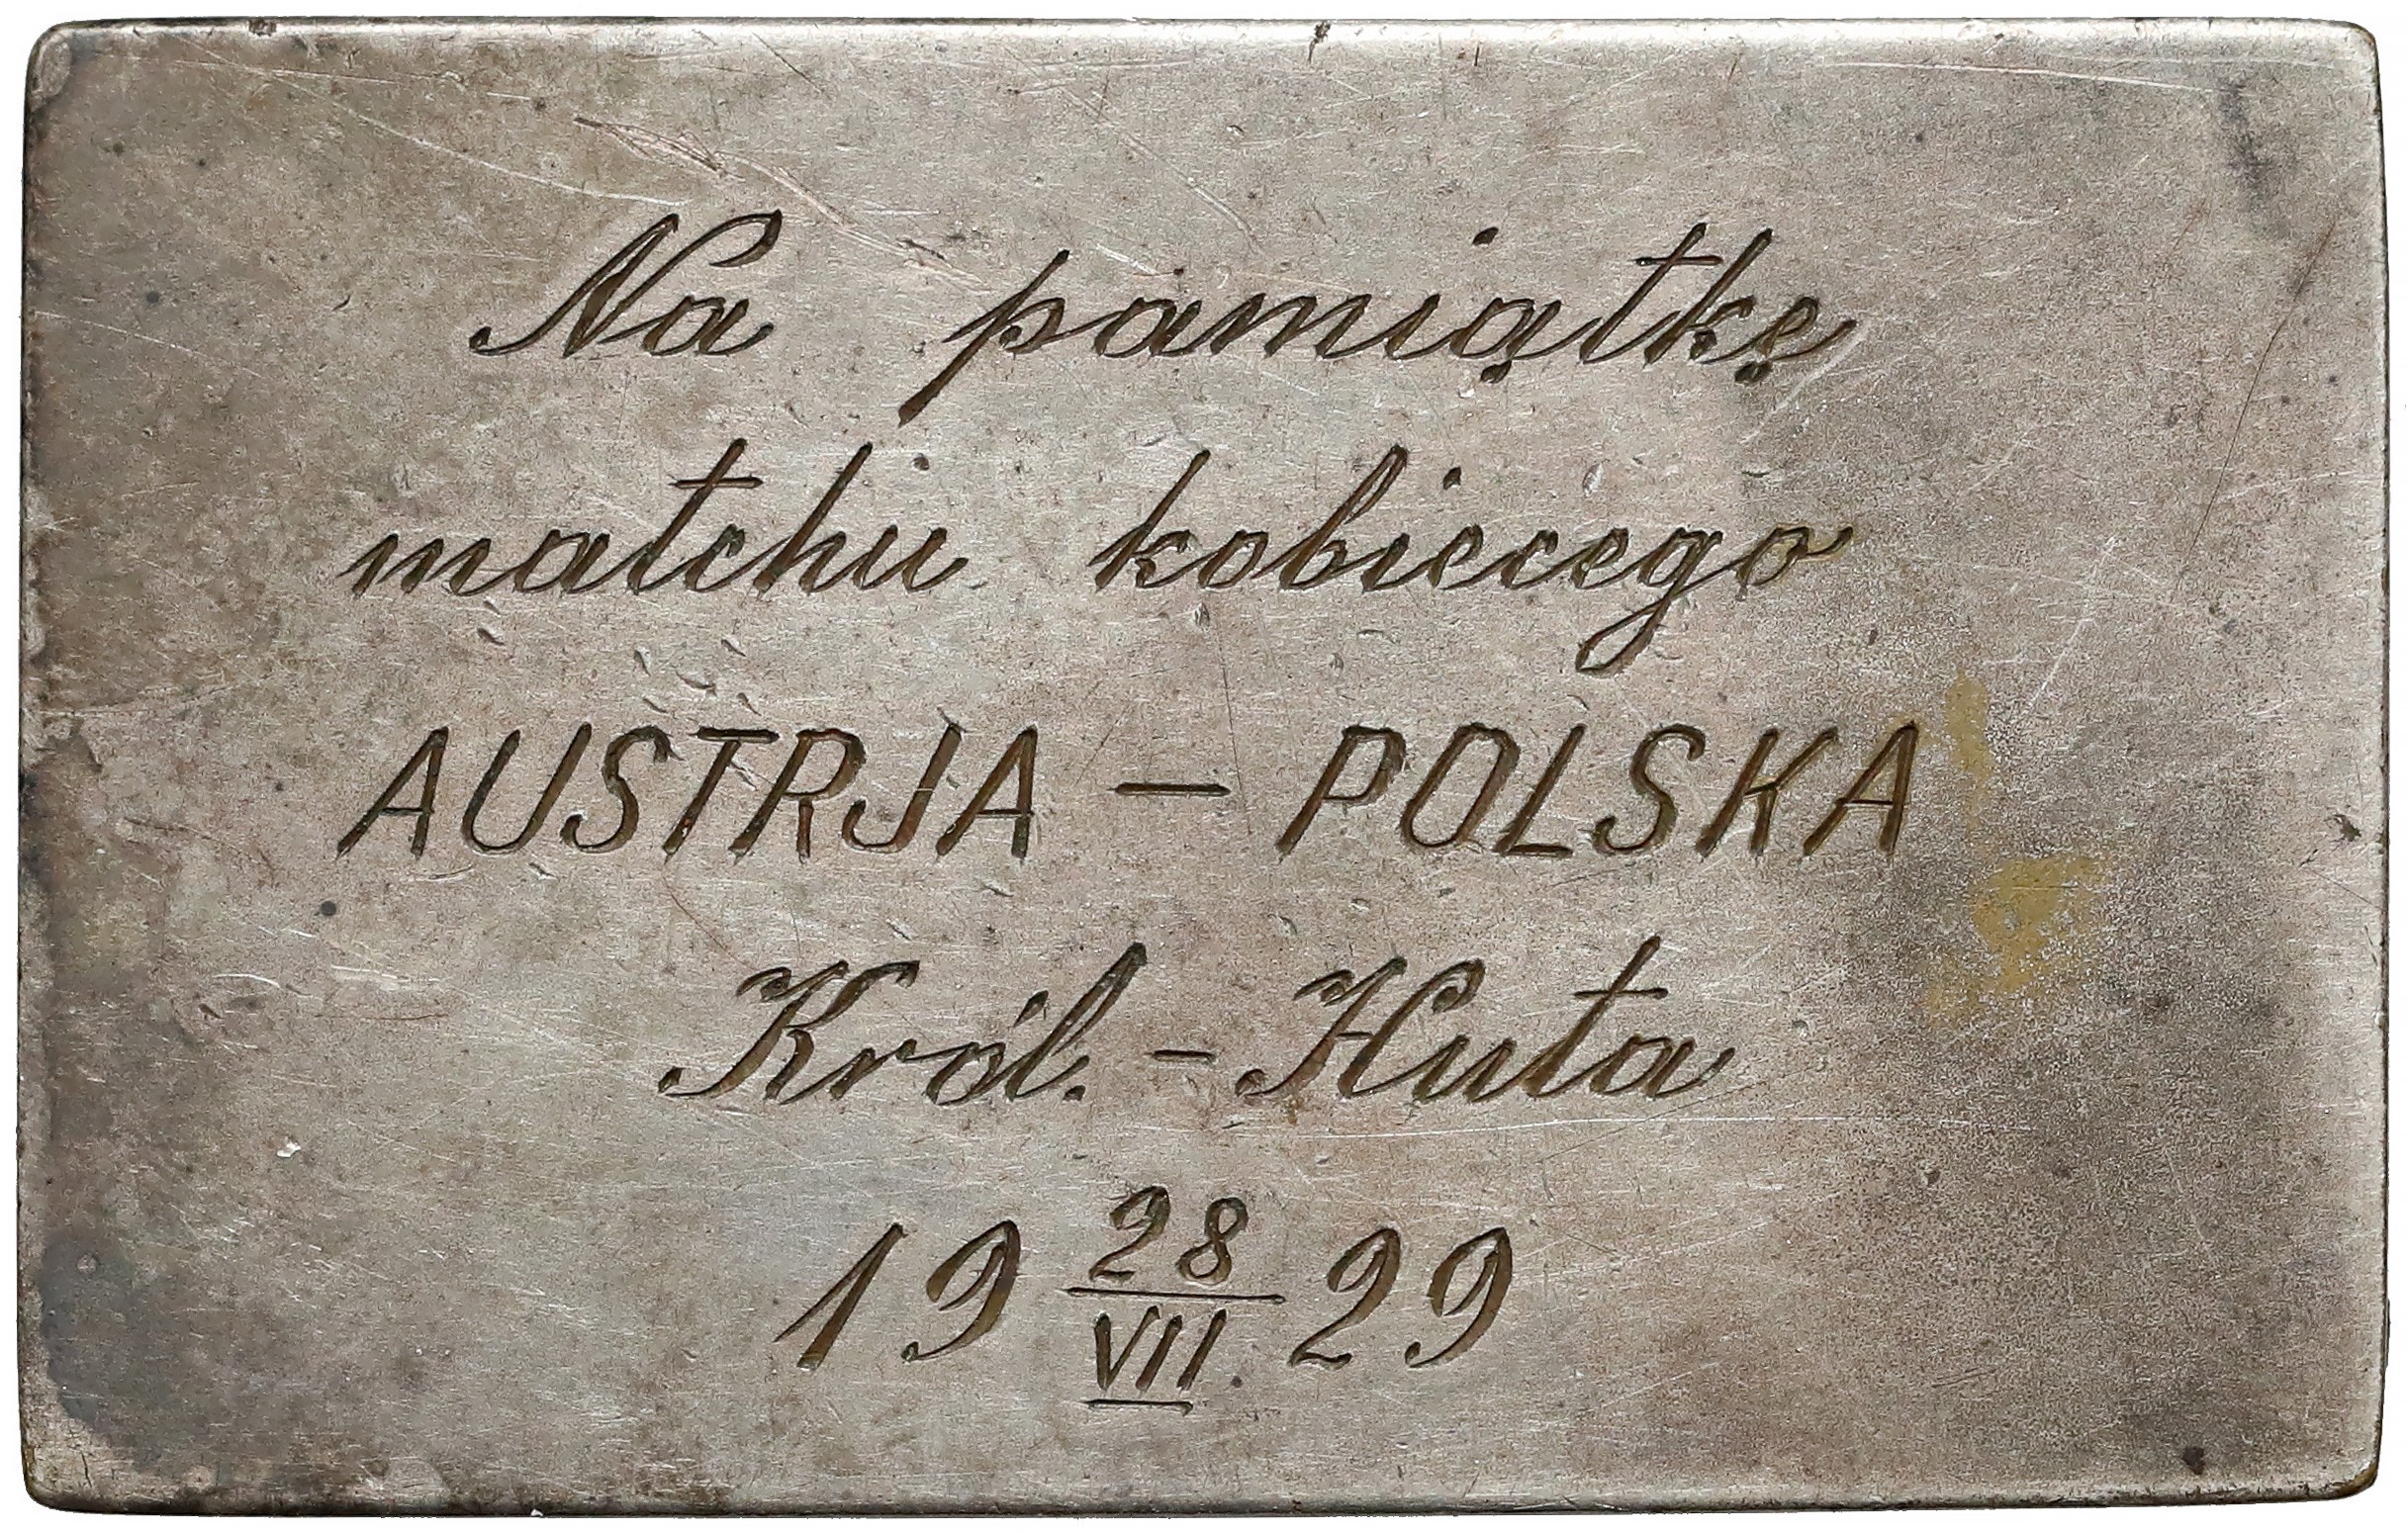 Na pamiątkę
matchu kobiecego
AUSTRJA – POLSKA
Król. – Huta
19 28/VII 29